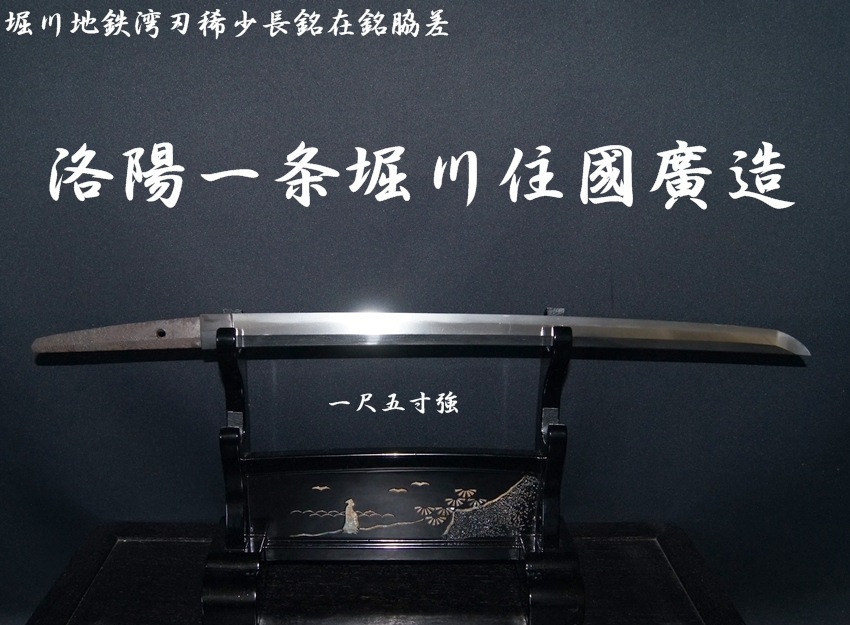 堀川地鉄湾刃稀少長銘在銘脇差
洛陽一条堀川住國廣造
一尺五寸強